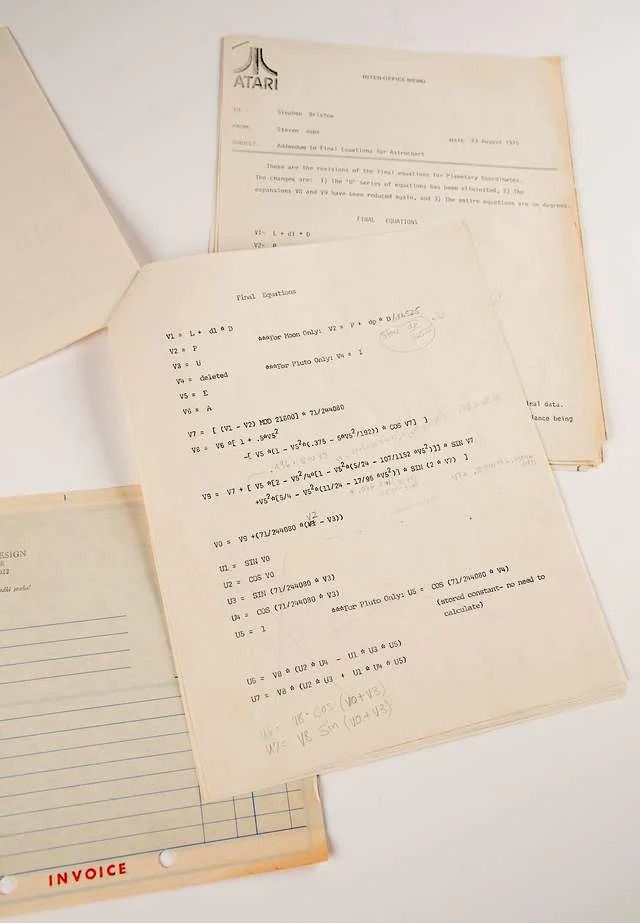 ATARI
INTER-OFFICE MEMO
TO:
Stephen Bristow
FROM:
Steven Jobs
Date: 23 August 1975
SUBJECT:
Addendum to Final Equations for Astrochart
These are the revisions of the final equations for Planetary Coordinates.
The changes are: 1) The 'U' series of equations has been eliminated, 2) The
expansions V8 and V9 have been reduced again, and 3) The entire equations are in degrees.
FINAL EQUATIONS
V1= L + d1 * D
V2= P
Final Equations
V1 = L + d1 * D
V2 = P
***For Moon Only: V2 = P + dp * D/36525
V3 = U
V4 = deleted
***For Pluto Only: V4 = I
V5 = E
V6 = A
V7 = [ (V1 - V2) MOD 21600] * 71/244080
V8 = V6 *[ 1 + .5*V5²
-[ V5 *(1 - V5²*(.375 - 5*V5²/192)) * COS V7] ]
V9 = V7 + [ V5 *[2 - V5²/4*[1 - V5²*(5/24 - 107/1152 *V5²)]] * SIN V7
+V5²*[5/4 - V5²*(11/24 - 17/96 *V5²)] * SIN (2 * V7) ]
V2
V0 = V9 +(71/244080 *( - V3))
U1 = SIN V0
U2 = COS V0
U3 = SIN (71/244080 * V3)
U4 = COS (71/244080 * V3)
U5 = 1
***For Pluto Only: U5 = COS (71/244080 * V4)
(stored constant- no need to
calculate)
U6 = V8 * (U2 * U4 - U1 * U3 * U5)
U7 = V8 * (U2 * U3 + U1 * U4 * U5)
U6= V8·cos (V0+V3)
U7= V8 sin (V0+V3)
nal data.
dance being
ESIGN
INVOICE